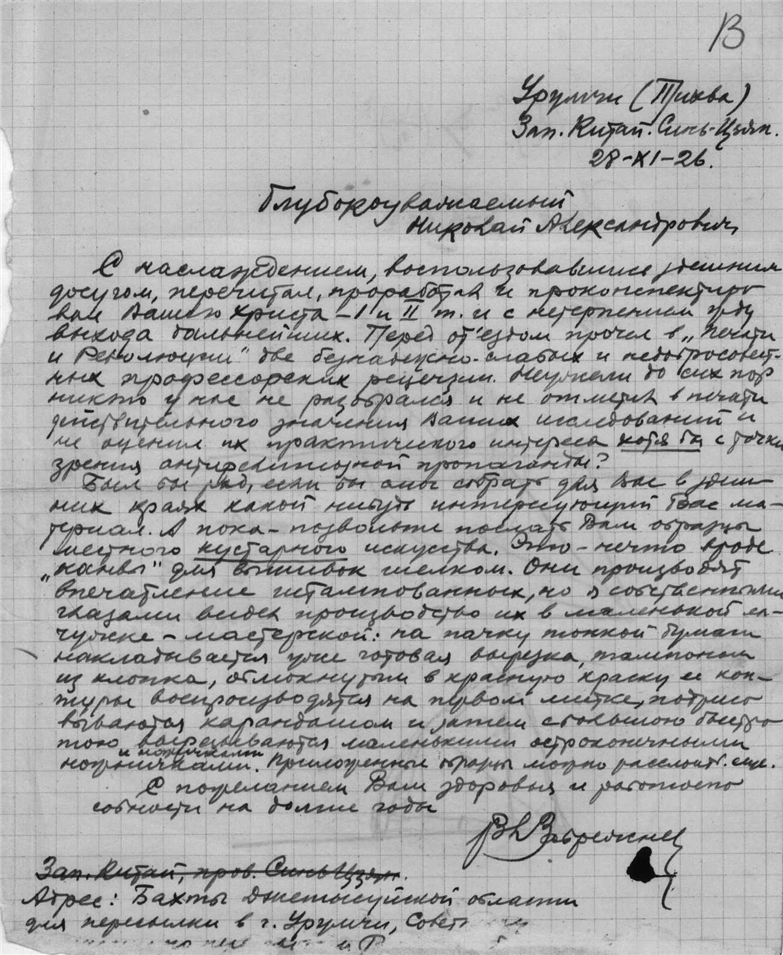 В
Урумчи (Тихва)
Зап. Китай. Синь-Цзян.
28-XI-26.
Глубокоуважаемый
Николай Александрович,
С наслаждением, воспользовавшись здешним
досугом, перечитал, проработал и проконспектиро
вал Вашего Христа - I и II т. и с нетерпением жду
выхода дальнейших. Перед от'ездом прочел в „Печати
и Революции" две безнадежно-слабых и недобросовест-
ных профессорских рецензии. Неужели до сих пор
никто у нас не разобрался и не отметил в печати
действительного значения Ваших исследований и
не оценил их практического интереса хотя бы с точки
зрения антирелигиозной пропаганды?
Был бы рад, если бы смог собрать для Вас в здеш-
них краях какой нибудь интересующий Вас ма-
териал. А пока - позвольте послать Вам образцы
местного кустарного искусства. Это - нечто вроде
„канвы" для вышивок шелком. Они производят
впечатление штампованных, но я собственными
глазами видел производство их в маленькой ла-
чужке - мастерской: на пачку тонкой бумаги
накладывается уже готовая вырезка, тампоном
из хлопка, обмокнутым в красную краску ее кон-
туры воспроизводятся на первом листке, подрисо
вываются карандашом и затем с большою быстро
тою вырезываются маленькими остроконечными
и ножичками
ножничками. Приложенные образцы можно расслоить еще.
С пожеланием Вам здоровья и работоспо
собности на долгие годы
Зап. Китай, пров. Синь-Цзян.
Адрес: Бахты Джетысуйской области
для пересылки в г. Урумчи, Совет